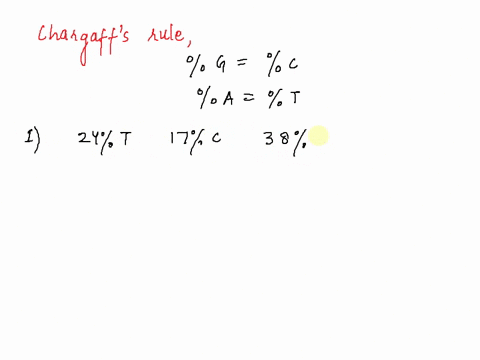 Chargaff's rule,
% G = % C
% A = % T
1) 24% T 17% C 38%